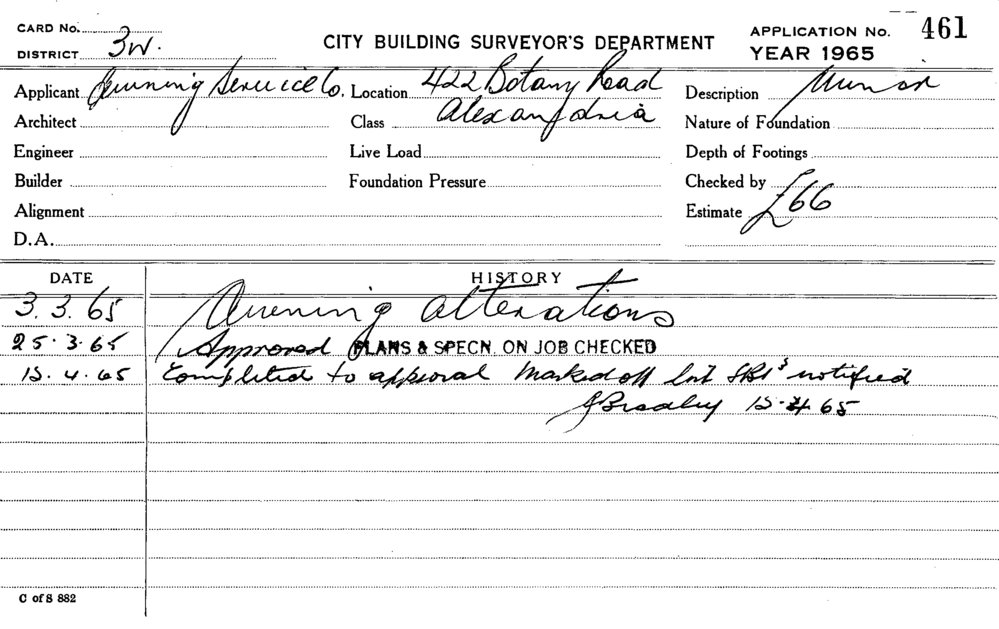 CARD No.
DISTRICT 3W.
CITY BUILDING SURVEYOR'S DEPARTMENT
APPLICATION No. 461
YEAR 1965
Applicant Awning Service Co. Location 422 Botany Road Description Minor
Architect Class Alexandria Nature of Foundation
Engineer Live Load Depth of Footings
Builder Foundation Pressure Checked by
Alignment Estimate £66
D.A.
DATE HISTORY
3.3.65 Awning alterations
25.3.65 Approved PLANS & SPECN. ON JOB CHECKED
15.4.65 Completed to approval Marked off notified
J Bradley 15.4.65
C of S 882